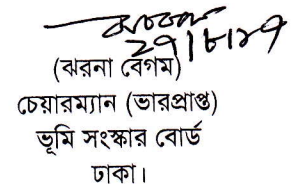 ২৭।৮।১৭
(ঝরনা বেগম)
চেয়ারম্যান (ভারপ্রাপ্ত)
ভূমি সংস্কার বোর্ড
ঢাকা।